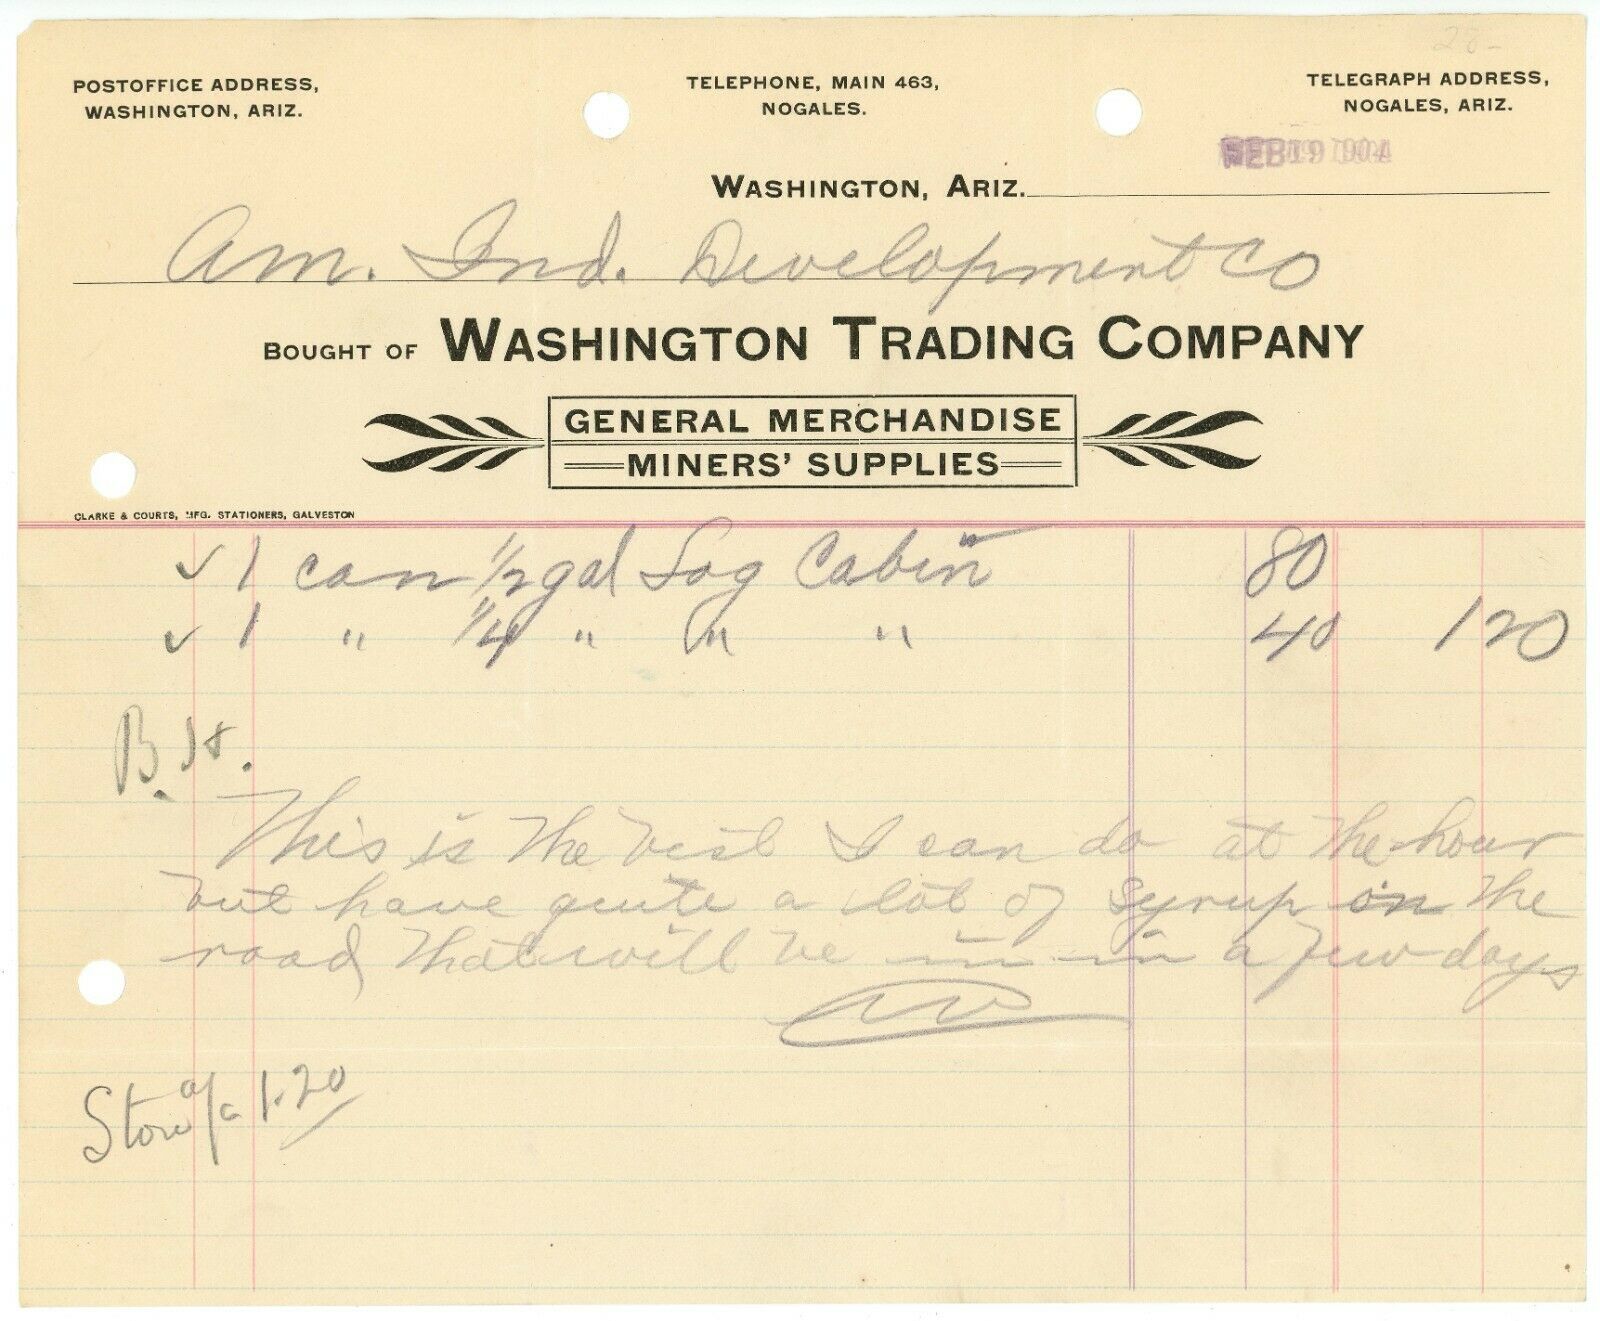 28-
POSTOFFICE ADDRESS,
WASHINGTON, ARIZ.
TELEPHONE, MAIN 463,
NOGALES.
TELEGRAPH ADDRESS,
NOGALES, ARIZ.
FEB 19 1904
WASHINGTON, ARIZ.
Am. Ind. Development Co
BOUGHT OF WASHINGTON TRADING COMPANY
GENERAL MERCHANDISE
MINERS' SUPPLIES
CLARKE & COURTS, MFG. STATIONERS, GALVESTON
✓ 1 can 1/2 gal Log Cabin 80
✓ 1 " 1/4 " " " 40 120
B.H.
This is the best I can do at the hour
but have quite a lot of syrup on the
road that will be in in a few days
Store a/c 1.20